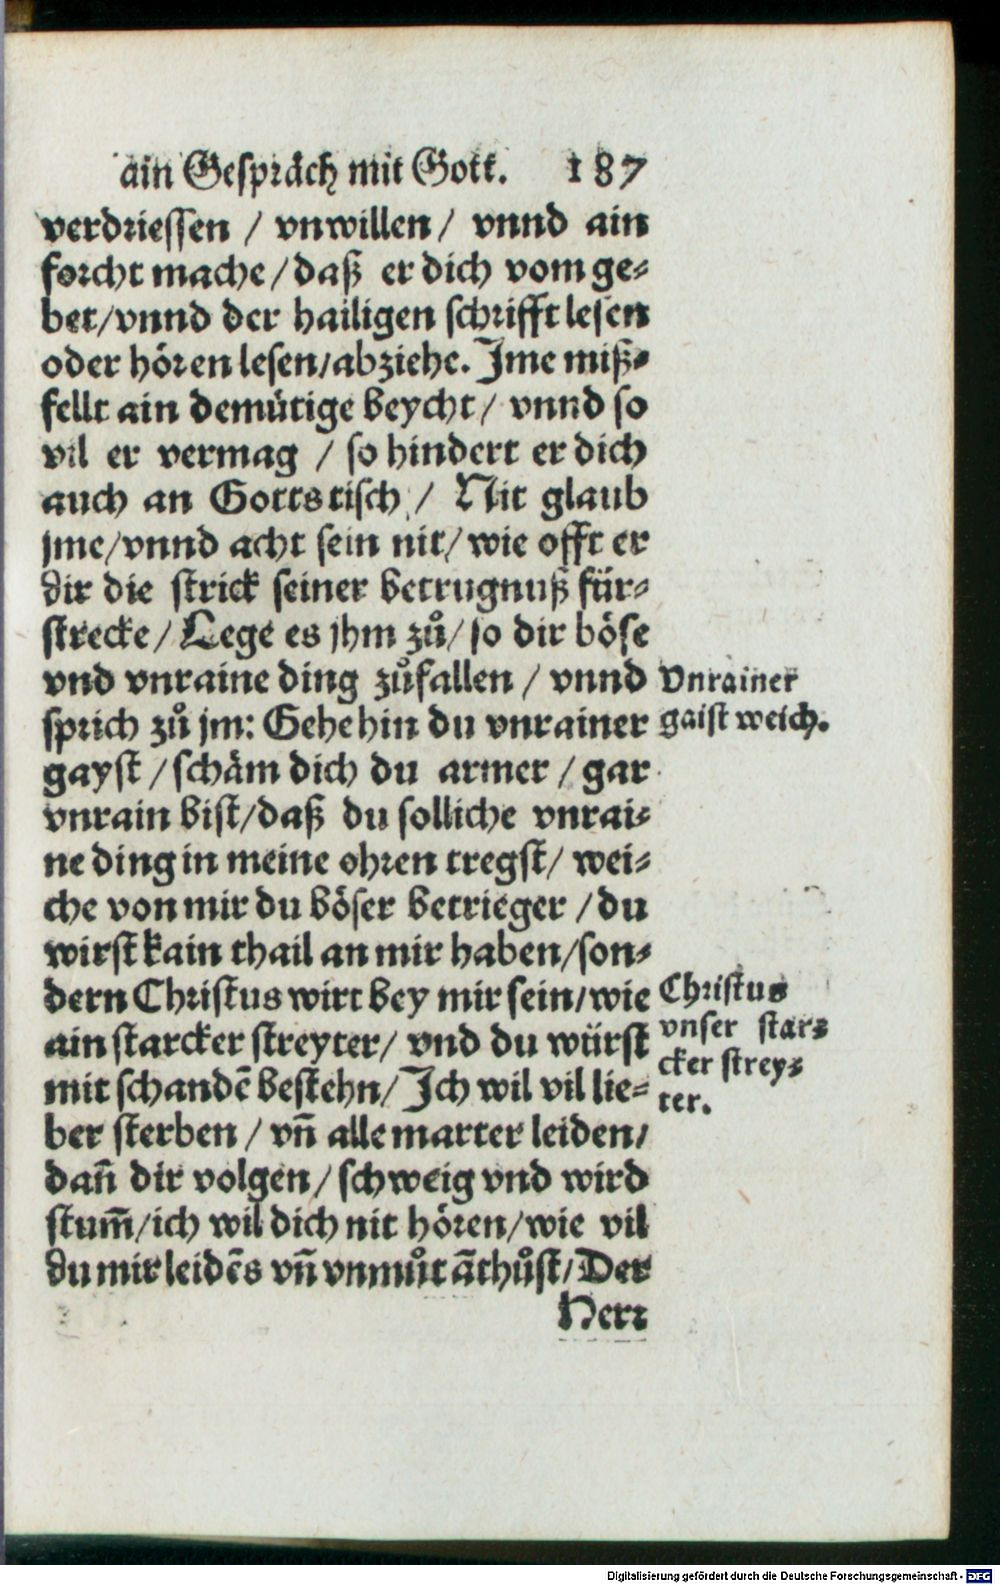 ain Gespräch mit Gott. 187
verdriessen / vnwillen / vnnd ain
forcht mache / daß er dich vom ge-
bet / vnnd der hailigen schrifft lesen
oder hören lesen / abziehe. Jme miß-
fellt ain demütige beycht / vnnd so
vil er vermag / so hindert er dich
auch an Gotts tisch / Nit glaub
jme / vnnd acht sein nit / wie offt er
dir die strick seiner betrugnuß für-
strecke / Lege es jhm zů / so dir böse
vnd vnraine ding zůfallen / vnnd
sprich zů jm: Gehe hin du vnrainer
gayst / schäm dich du armer / gar
vnrain bist / daß du solliche vnrai-
ne ding in meine ohren tregst / wei-
che von mir du böser betrieger / du
wirst kain thail an mir haben / son-
dern Christus wirt bey mir sein / wie
ain starcker streyter / vnd du würst
mit schandē bestehn / Jch wil vil lie-
ber sterben / vn̄ alle marter leiden /
dan̄ dir volgen / schweig vnd wird
stum̄ / ich wil dich nit hören / wie vil
du mir leidēs vn̄ vnmůt āthůst / Der
Herr
Vnrainer
gaist weich.
Christus
vnser star-
cker strey-
ter.
Digitalisierung gefördert durch die Deutsche Forschungsgemeinschaft - DFG